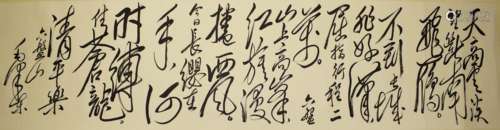 天高雲淡
望斷南
飛雁。
不到長城
非好漢
屈指行程二
萬。六盤
山上高峯
紅旗漫
捲西風。
今日長纓在
手、何
時縛
住蒼龍。
清平樂
六盤山
毛澤東